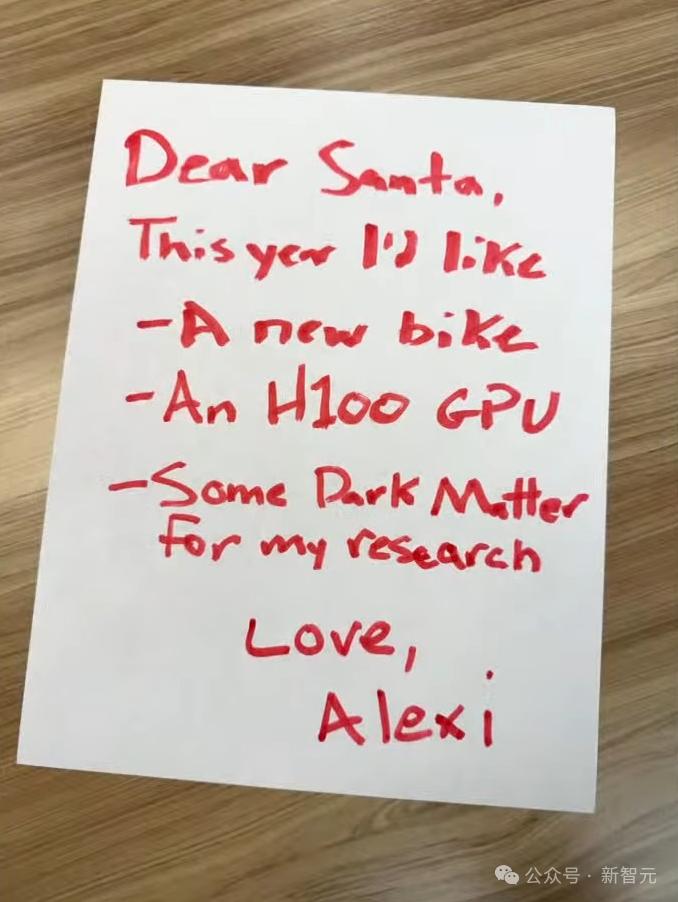 Dear Santa,
This year I'd like
-A new bike
-An H100 GPU
-Some Dark Matter
for my research
Love,
Alexi
公众号·新智元